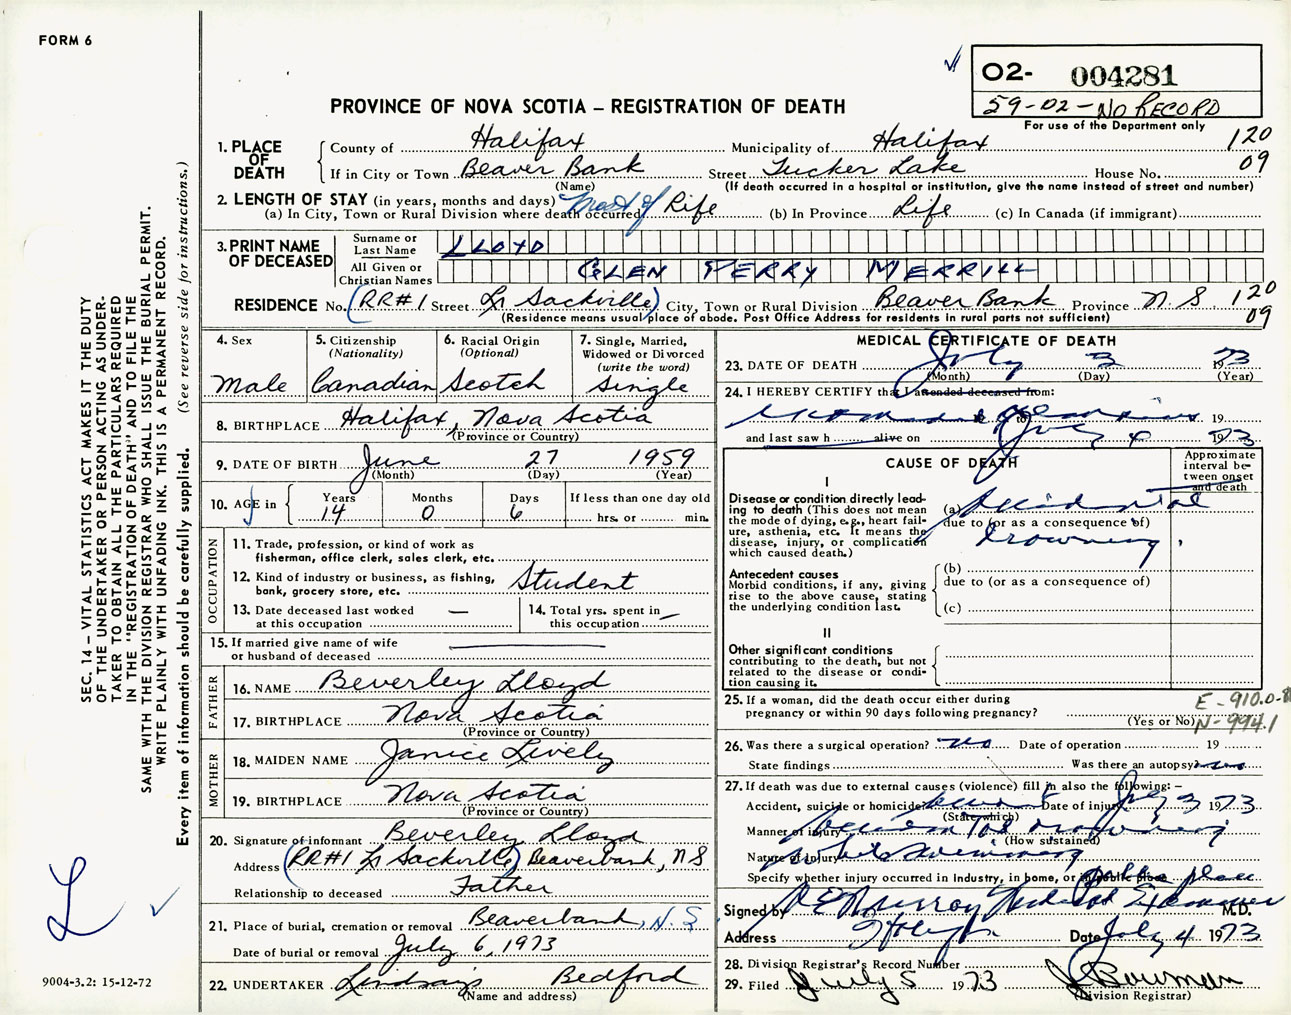 FORM 6
02- 004281
59-02-NO RECORD
For use of the Department only
PROVINCE OF NOVA SCOTIA – REGISTRATION OF DEATH
1. PLACE OF DEATH
County of Halifax Municipality of Halifax 120
If in City or Town Beaver Bank Street Tucker Lake House No. 09
(Name) (If death occurred in a hospital or institution, give the name instead of street and number)
2. LENGTH OF STAY (in years, months and days)
(a) In City, Town or Rural Division where death occurred Most of Life (b) In Province Life (c) In Canada (if immigrant)
3. PRINT NAME OF DECEASED
Surname or Last Name LLOYD
All Given or Christian Names GLEN PERRY MERRILL
RESIDENCE No. (RR#1 Street Lr Sackville) City, Town or Rural Division Beaver Bank Province N.S. 120
(Residence means usual place of abode. Post Office Address for residents in rural parts not sufficient) 09
4. Sex
Male
5. Citizenship
(Nationality)
Canadian
6. Racial Origin
(Optional)
Scotch
7. Single, Married,
Widowed or Divorced
(write the word)
Single
8. BIRTHPLACE Halifax, Nova Scotia
(Province or Country)
9. DATE OF BIRTH June 27 1959
(Month) (Day) (Year)
10. AGE in Years Months Days If less than one day old
14 0 6 hrs. or min.
OCCUPATION
11. Trade, profession, or kind of work as
fisherman, office clerk, sales clerk, etc.
12. Kind of industry or business, as fishing,
bank, grocery store, etc. Student
13. Date deceased last worked
at this occupation —
14. Total yrs. spent in
this occupation —
15. If married give name of wife
or husband of deceased
FATHER
16. NAME Beverley Lloyd
17. BIRTHPLACE Nova Scotia
(Province or Country)
MOTHER
18. MAIDEN NAME Janice Lively
19. BIRTHPLACE Nova Scotia
(Province or Country)
20. Signature of informant Beverley Lloyd
Address (RR#1 Lr Sackville) Beaverbank, NS
Relationship to deceased Father
21. Place of burial, cremation or removal Beaverbank, N.S
Date of burial or removal July 6, 1973
22. UNDERTAKER Lindsay's Bedford
(Name and address)
MEDICAL CERTIFICATE OF DEATH
23. DATE OF DEATH July 3 1973
(Month) (Day) (Year)
24. I HEREBY CERTIFY that I attended deceased from:
19
and last saw h alive on July 4 1973
CAUSE OF DEATH
Approximate
interval be-
tween onset
and death
I
Disease or condition directly lead-
ing to death (This does not mean
the mode of dying, e.g., heart fail-
ure, asthenia, etc. It means the
disease, injury, or complication
which caused death.)
(a) Accidental
due to (or as a consequence of)
drowning.
Antecedent causes
Morbid conditions, if any, giving
rise to the above cause, stating
the underlying condition last.
(b)
due to (or as a consequence of)
(c)
II
Other significant conditions
contributing to the death, but not
related to the disease or condi-
tion causing it.
25. If a woman, did the death occur either during
pregnancy or within 90 days following pregnancy?
(Yes or No)
E-910.0-8
N-994.1
26. Was there a surgical operation? no Date of operation 19
State findings Was there an autopsy no
27. If death was due to external causes (violence) fill in also the following: –
Accident, suicide or homicide Date of injury July 3 1973
(State which)
Manner of injury drowning
(How sustained)
Nature of Injury while swimming
Specify whether injury occurred in Industry, in home, or in public place public place
Signed by Murray Medical Examiner M.D.
Address Date July 4 1973
28. Division Registrar's Record Number
29. Filed July 5 1973 J Bowman
(Division Registrar)
SEC. 14 – VITAL STATISTICS ACT MAKES IT THE DUTY
OF THE UNDERTAKER OR PERSON ACTING AS UNDER-
TAKER TO OBTAIN ALL THE PARTICULARS REQUIRED
IN THE "REGISTRATION OF DEATH" AND TO FILE THE
SAME WITH THE DIVISION REGISTRAR WHO SHALL ISSUE THE BURIAL PERMIT.
WRITE PLAINLY WITH UNFADING INK. THIS IS A PERMANENT RECORD.
Every item of information should be carefully supplied. (See reverse side for instructions.)
L
9004-3.2: 15-12-72